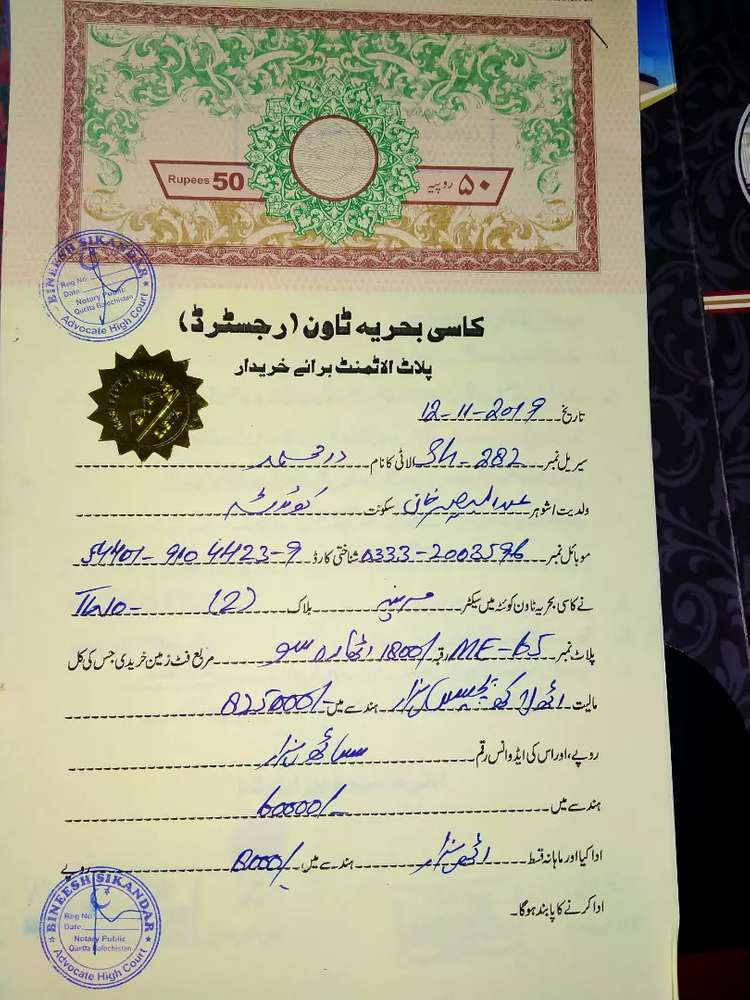 Rupees 50 ۵۰ روپیہ
BINEESH SIKANDAR
Reg No.
Date
Notary Public
Quetta Balochistan
Advocate High Court
کاسی بحریہ ٹاون (رجسٹرڈ)
پلاٹ الاٹمنٹ برائے خریدار
تاریخ 12-11-2019
سیریل نمبر SH-282 الاٹی کا نام در محمد
ولدیت/شوہر خان سکونت کوئٹہ
موبائل نمبر 0333-2003596 شناختی کارڈ 54401-9104423-9
نے کاسی بحریہ ٹاون کوئٹہ میں سیکٹر بلاک (2) Two
پلاٹ نمبر ME-65 رقبہ 1800/ اٹھارہ سو مربع فٹ زمین خریدی جس کی کل
مالیت آٹھ لاکھ پچیس ہزار ہندسے میں 825000/-
روپے، اور اس کی ایڈوانس رقم ساٹھ ہزار
ہندسے میں 60000/-
ادا کیا اور ماہانہ قسط آٹھ ہزار ہندسے میں 8000/- روپے
ادا کرنے کا پابند ہوگا۔
BINEESH SIKANDAR
Reg No.
Date
Notary Public
Quetta Balochistan
Advocate High Court